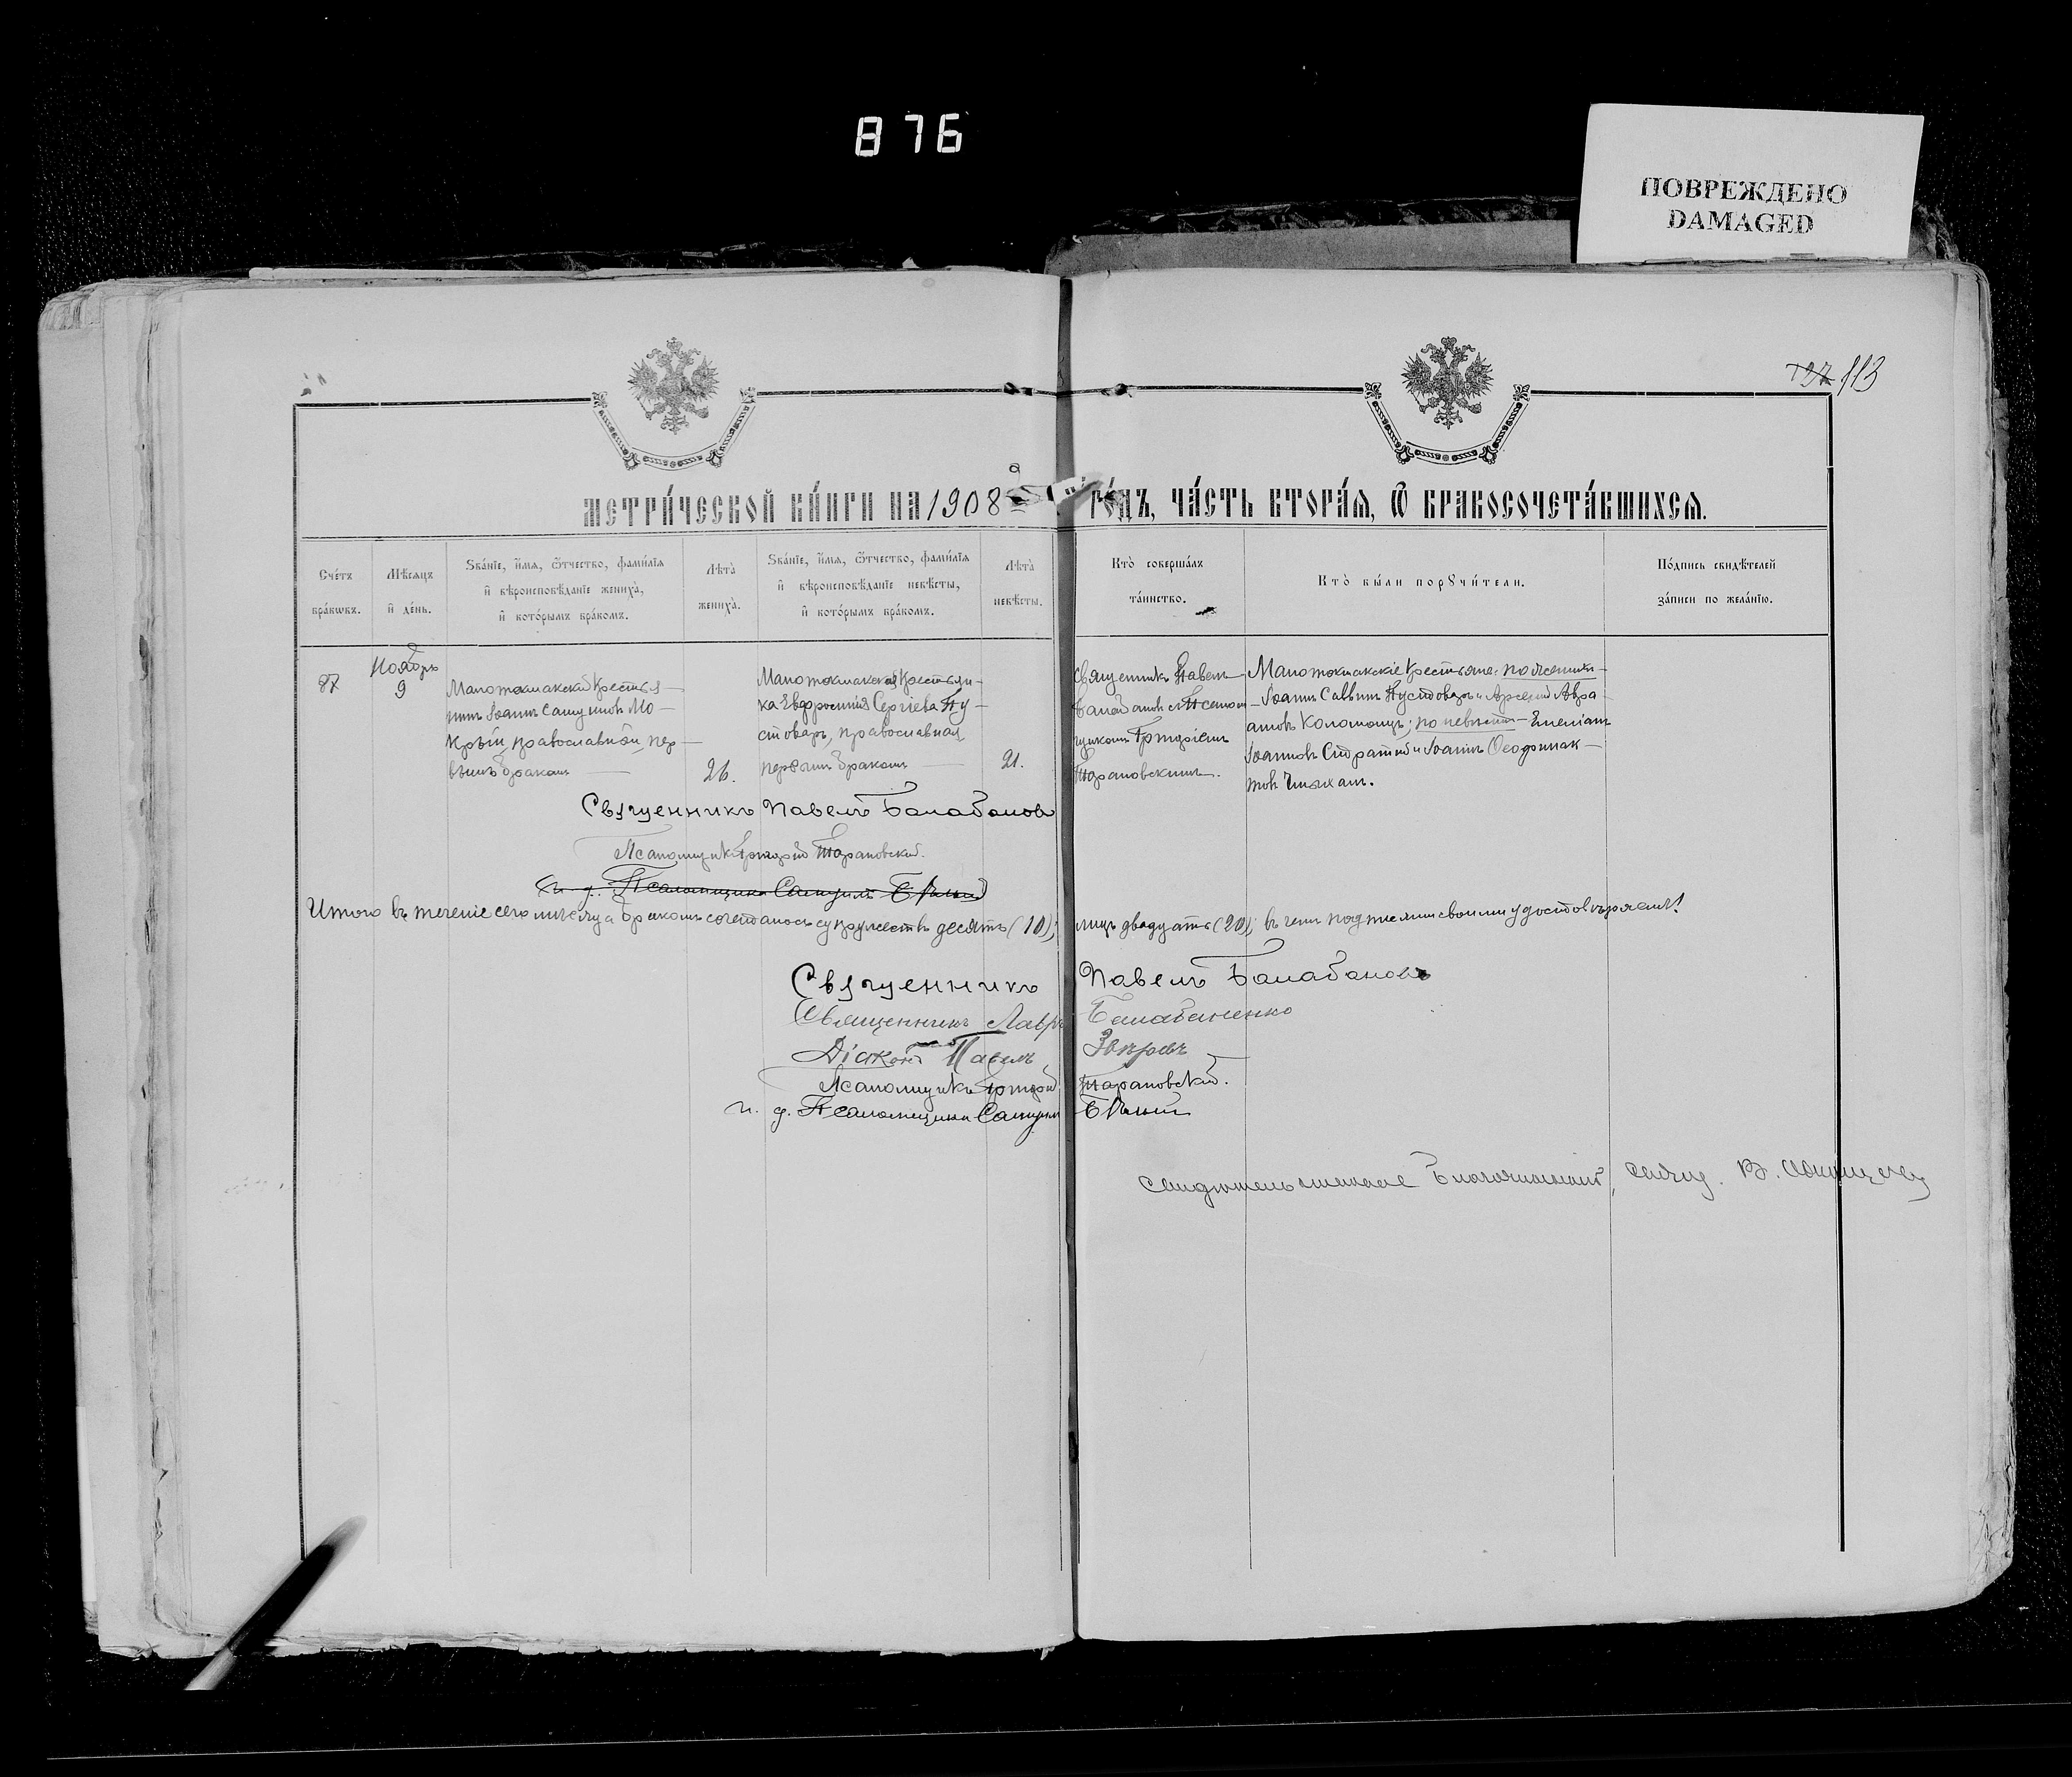 876
ПОВРЕЖДЕНО
DAMAGED
127 113
МЕТРИ́ЧЕСКОЙ КНИ́ГИ НА 1908 ГО́ДЪ, ЧА́СТЬ ВТОРА́Я, Ѿ БРАКОСОЧЕТА́ВШИХСЯ.
Сче́тъ
бра́кѡвъ.
Мѣ́сяцъ
и҆ де́нь.
Ѕва́нїе, и҆́мя, ѻ҆́тчество, фами́лїя
и҆ вѣроисповѣ́данїе жениха̀,
и҆ кото́рымъ бра́комъ.
Лѣта̀
жениха̀.
Ѕва́нїе, и҆́мя, ѻ҆́тчество, фами́лїя
и҆ вѣроисповѣ́данїе невѣ́сты,
и҆ кото́рымъ бра́комъ.
Лѣта̀
невѣ́сты.
Кто̀ соверша́лъ
та́инство.
Кто̀ бы́ли порꙋчи́тели.
По́дпись свидѣ́телей
за́писи по жела́нїю.
87
Ноябрь
9
Малотокмакскій крестья-
нинъ Іоаннъ Самуиловъ Мо-
крый, православный, пер-
вымъ бракомъ
26.
Малотокмакская крестьян-
ка Евфросинія Сергіева Пу-
стоваръ, православная,
первымъ бракомъ
21.
Священникъ Павелъ
Балабановъ с Псалом-
щикомъ Григоріемъ
Тарановскимъ.
Малотокмакскіе крестьяне: по женихѣ-
Іоаннъ Саввинъ Пустоваръ и Арсеній Авра-
амовъ Коломоецъ; по невѣстѣ - Емеліанъ
Іоанновъ Стратій и Іоаннъ Ѳеофилак-
товъ
Священникъ Павелъ Балабановъ
Псаломщикъ Григорій Тарановскій.
и. д. Псаломщика Самуилъ Бѣлый
Итого въ теченіе сего мѣсяца бракомъ сочеталось супружествъ десять (10); лицъ двадцать (20); въ чемъ подписями своими удостовѣряемъ!
Священникъ Павелъ Балабановъ
Священникъ Лавръ Балабаненко
Діаконъ Павелъ Звѣревъ
Псаломщикъ Григорій Тарановскій.
и. д. Псаломщика Самуилъ Бѣлый
Благочинный, свящ. В.